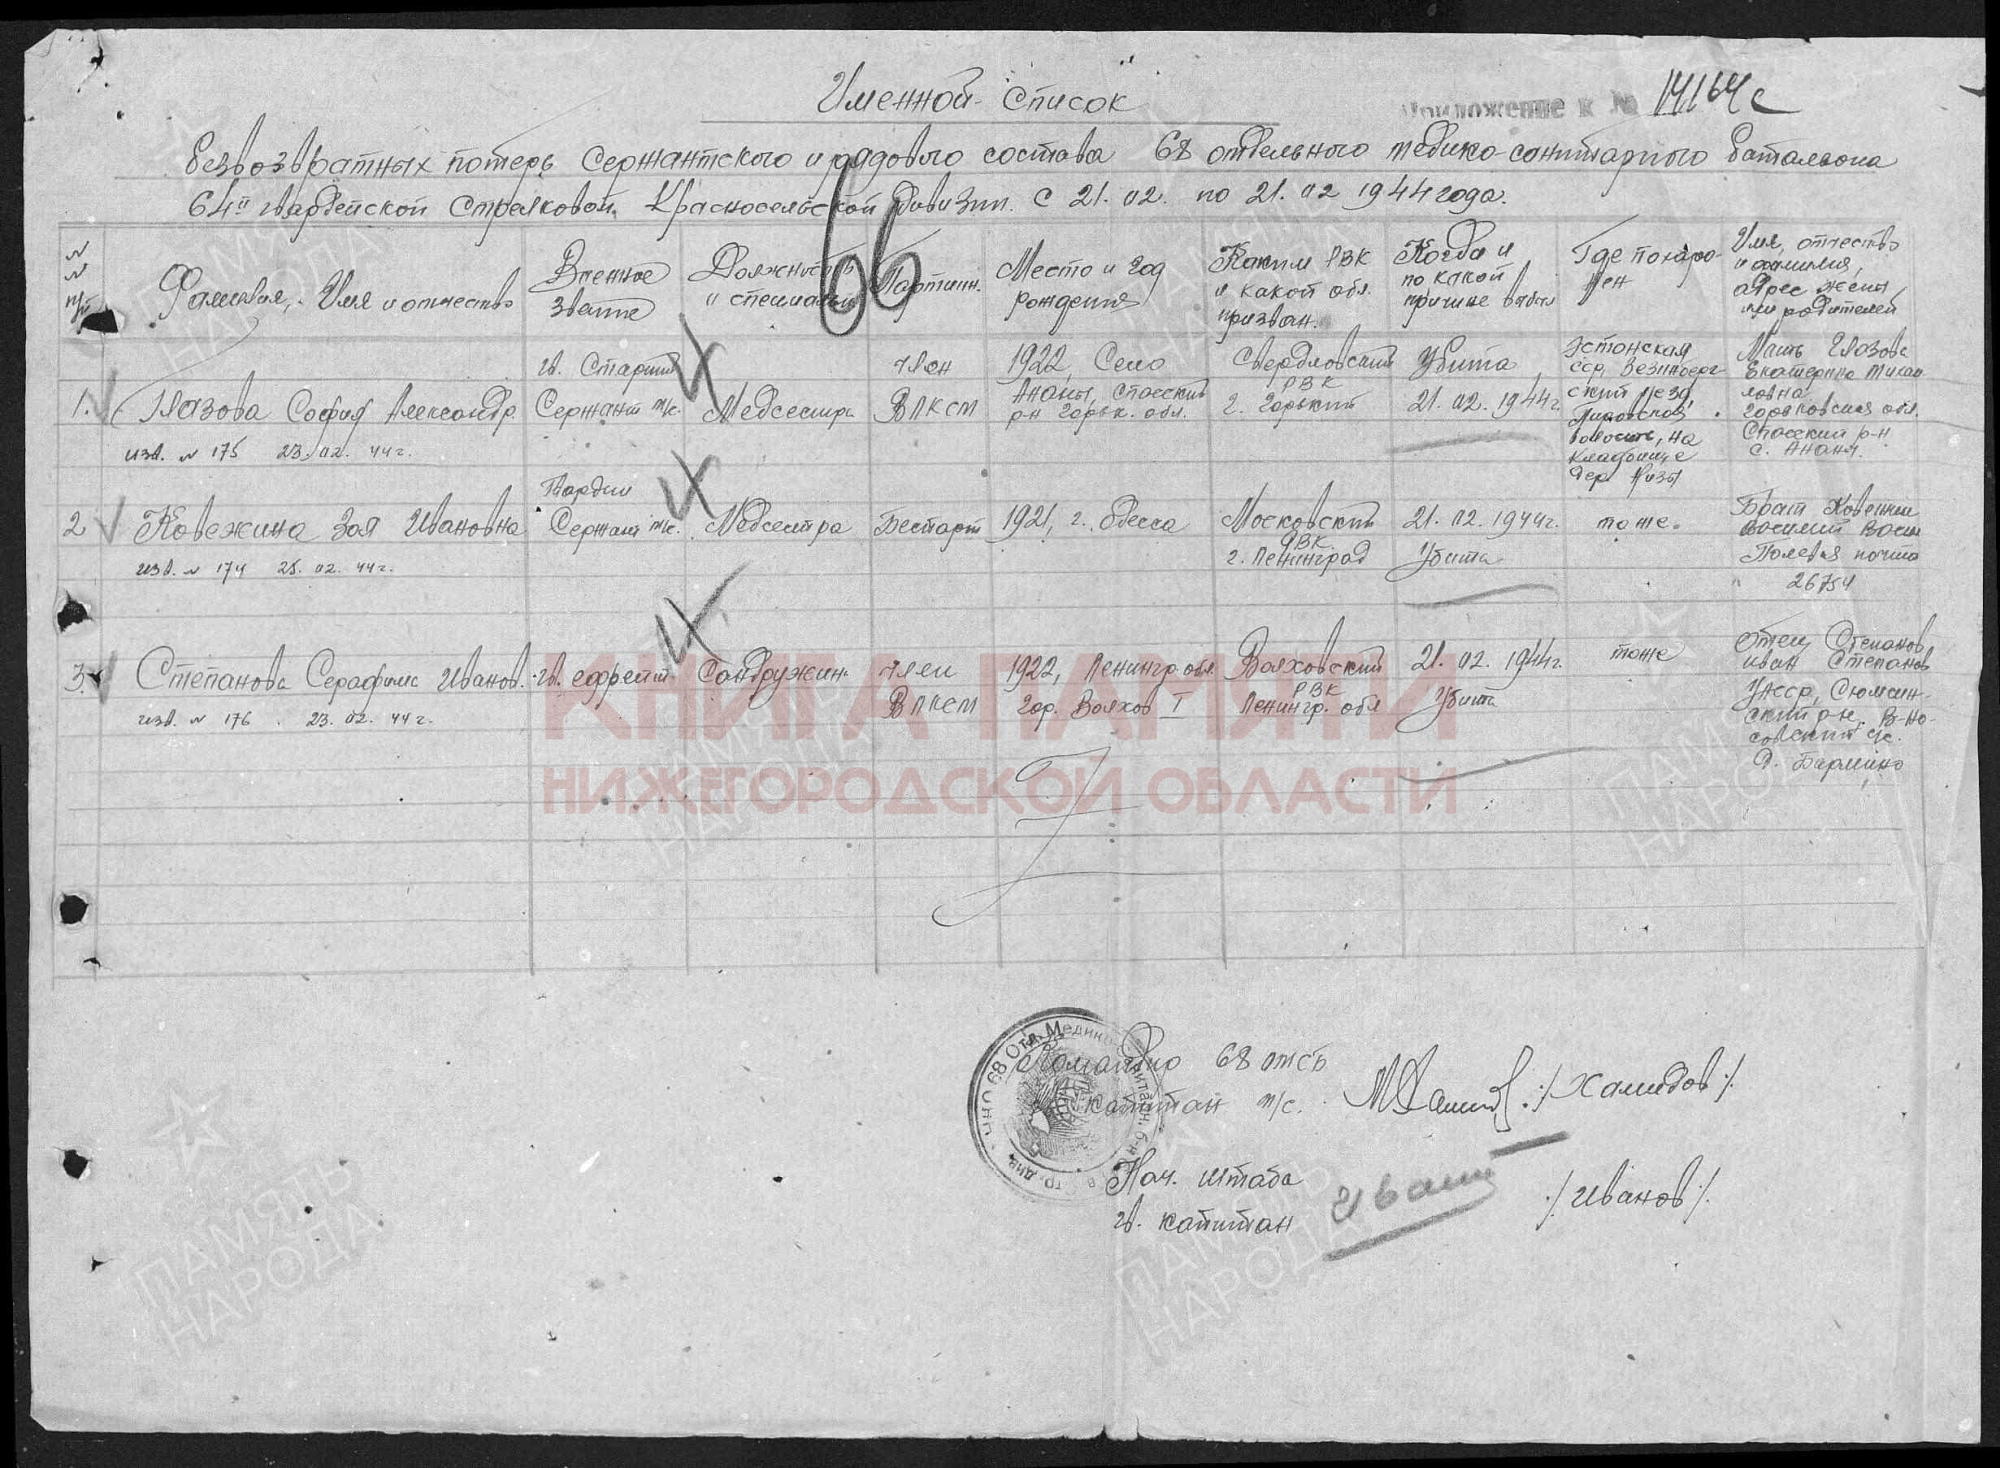 Именной список
Приложение к № 14164с
безвозвратных потерь сержантского и рядового состава 68 отдельного медико-санитарного баталиона
64й гвардейской стрелковой Красносельской дивизии с 21.02. по 21.02 1944 года.
66
№ № п/п
Фамилия, Имя и отчество
Военное звание
Должность и специальн.
Партийн.
Место и год рождения
Каким РВК и какой обл. призван.
Когда и по какой причине выбыл
Где похоронен
Имя, отчество и фамилия, адрес жены, или родителей
1.
Глазова София Александр.
изв. № 175 23.02.44г.
гв. Старший Сержант м/с.
Медсестра
член ВЛКСМ
1922, Село Ананьи, Спасский р-н Горьк. обл.
Свердловский РВК г. Горький
Убита 21.02.1944г.
Эстонская ССР, уезд, волость, на кладбище дер. Ризы
Мать Глазова Екатерина Горьковская обл. Спасский р-н с. Ананьи.
2
Ковежина Зоя Ивановна
изв. № 174 25.02.44г.
Гвардии Сержант м/с.
Медсестра
Беспарт
1921, г. Одесса
Московский РВК г. Ленинград
21.02.1944г. Убита
тоже.
Брат Полевая почта 26754
3.
Степанова Серафима Иванов.
изв. № 176 23.02.44г.
гв. ефрейт.
Сандружин.
член ВЛКСМ
1922, Ленингр. обл. Гор. Волхов I
Волховский РВК Ленингр. обл
21.02.1944г. Убита
тоже
Отец Степанов Иван Степанов УАССР, Сюмсинский р-н, с/с. д. Бармино
КНИГА ПАМЯТИ
НИЖЕГОРОДСКОЙ ОБЛАСТИ
Командир 68 омсб
капитан м/с. /Хамидов/
Нач. штаба
гв. капитан Иванов /Иванов/
68 Отд. Медико
ПАМЯТЬ
НАРОДА